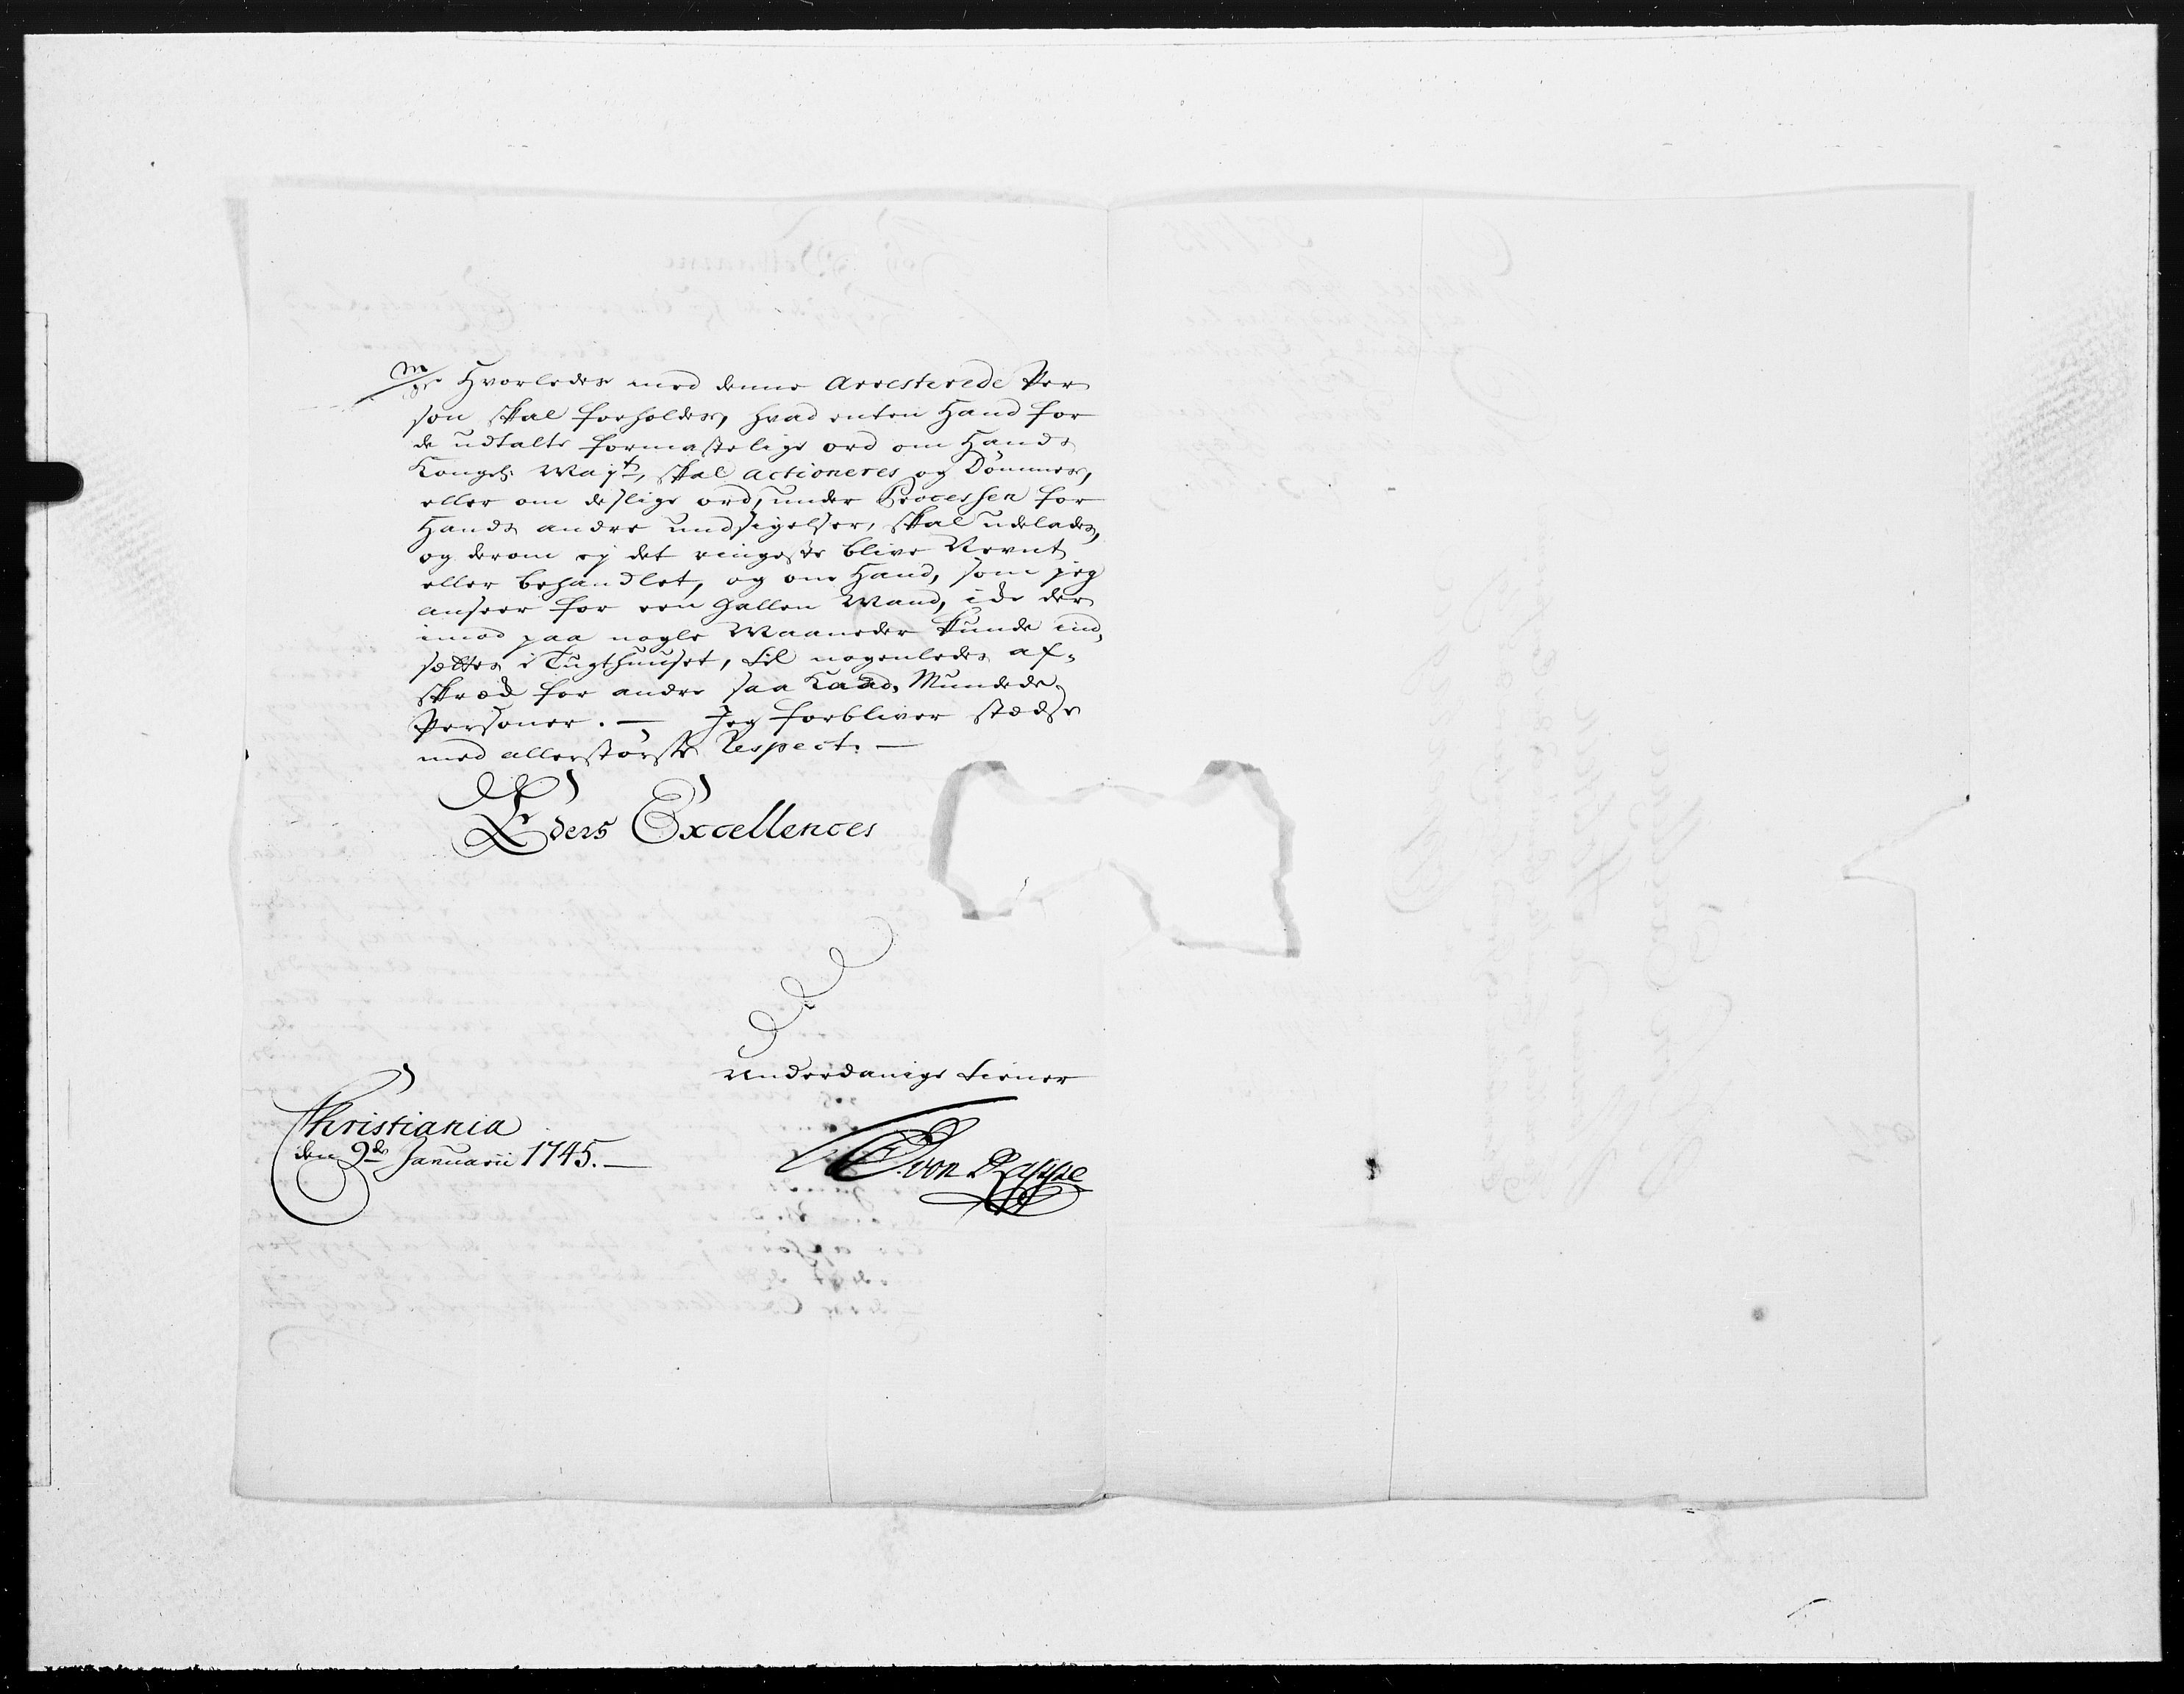 Hvorledes med denne Arresterede Per
son skal forholdes, hvad enten Hand for
de udtalte formastelige ord om Hands
Kongel: Mayt, skal actioneres og Dömmes,
eller om deslige ord, under Processen for
Hands andre undsigelser, skal udelades,
og derom ej det ringeste blive Nevnt
eller behandlet, og om Hand, som jeg
anseer for een gallen Mand, i de der
imod paa nogle Maaneder kunde ind,
sættes i Tugthuuset, til nogenledes af-
skræk for andre saa Kaad, Mundede
Personer. — Jeg forbliver stædse
med allerstörste Respect. —
Eders Excellences
Underdanige tiener
Christiania
den 9de Januarii 1745. —
von Rappe